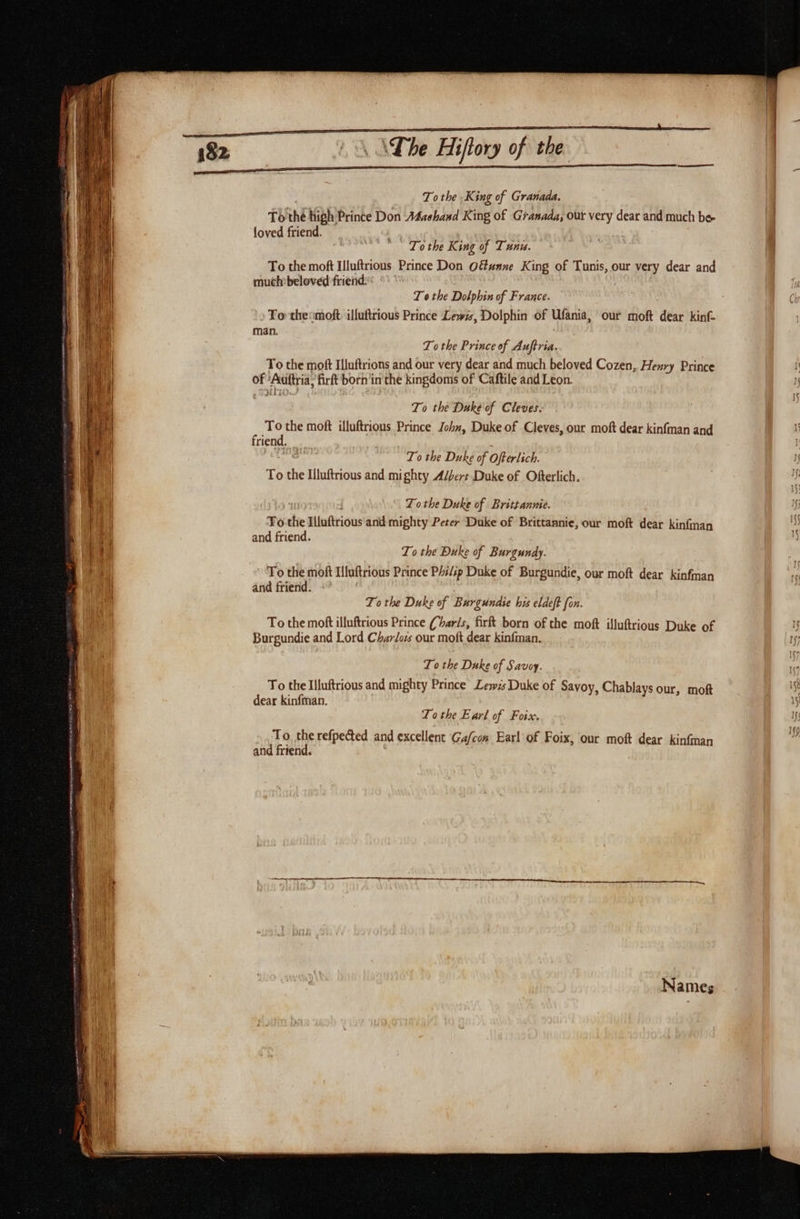 182 The Hiſtory of the
To the King of Granada.
To the high Prince Don Maehand King of Granada, our very dear and much be-
loved friend.
To the King of Tunis.
To the moſt Illuſtrious Prince Don Octunne King of Tunis, our very dear and
much beloved friend.
To the Dolphin of France.
To the moſt illuſtrious Prince Lewis, Dolphin of Uſania, our moſt dear kinſ-
man.
To the Prince of Auſtria.
To the moſt Illuſtrions and our very dear and much beloved Cozen, Henry Prince
of Auſtria, firſt born in the kingdoms of Caſtile and Leon.
To the Duke of Cleves.
To the moſt illuſtrious Prince John, Duke of Cleves, our moſt dear kinſman and
friend.
To the Duke of Oſterlich.
To the Illuſtrious and mighty Albert Duke of Oſterlich.
To the Duke of Brittannie.
To the Illuſtrious and mighty Peter Duke of Brittannie, our moſt dear kinſman
and friend.
To the Duke of Burgundy.
To the moſt Illuſtrious Prince Philip Duke of Burgundie, our moſt dear kinſman
and friend.
To the Duke of Burgundie his eldeſt ſon.
To the moſt illuſtrious Prince Charls, firſt born of the moſt illuſtrious Duke of
Burgundie and Lord Charlois our moſt dear kinſman.
To the Duke of Savoy.
To the Illuſtrious and mighty Prince Lewis Duke of Savoy, Chablays our, moſt
dear kinſman.
To the Earl of Foix.
To the reſpected and excellent Gaſcon Earl of Foix, our moſt dear kinſman
and friend.
Names